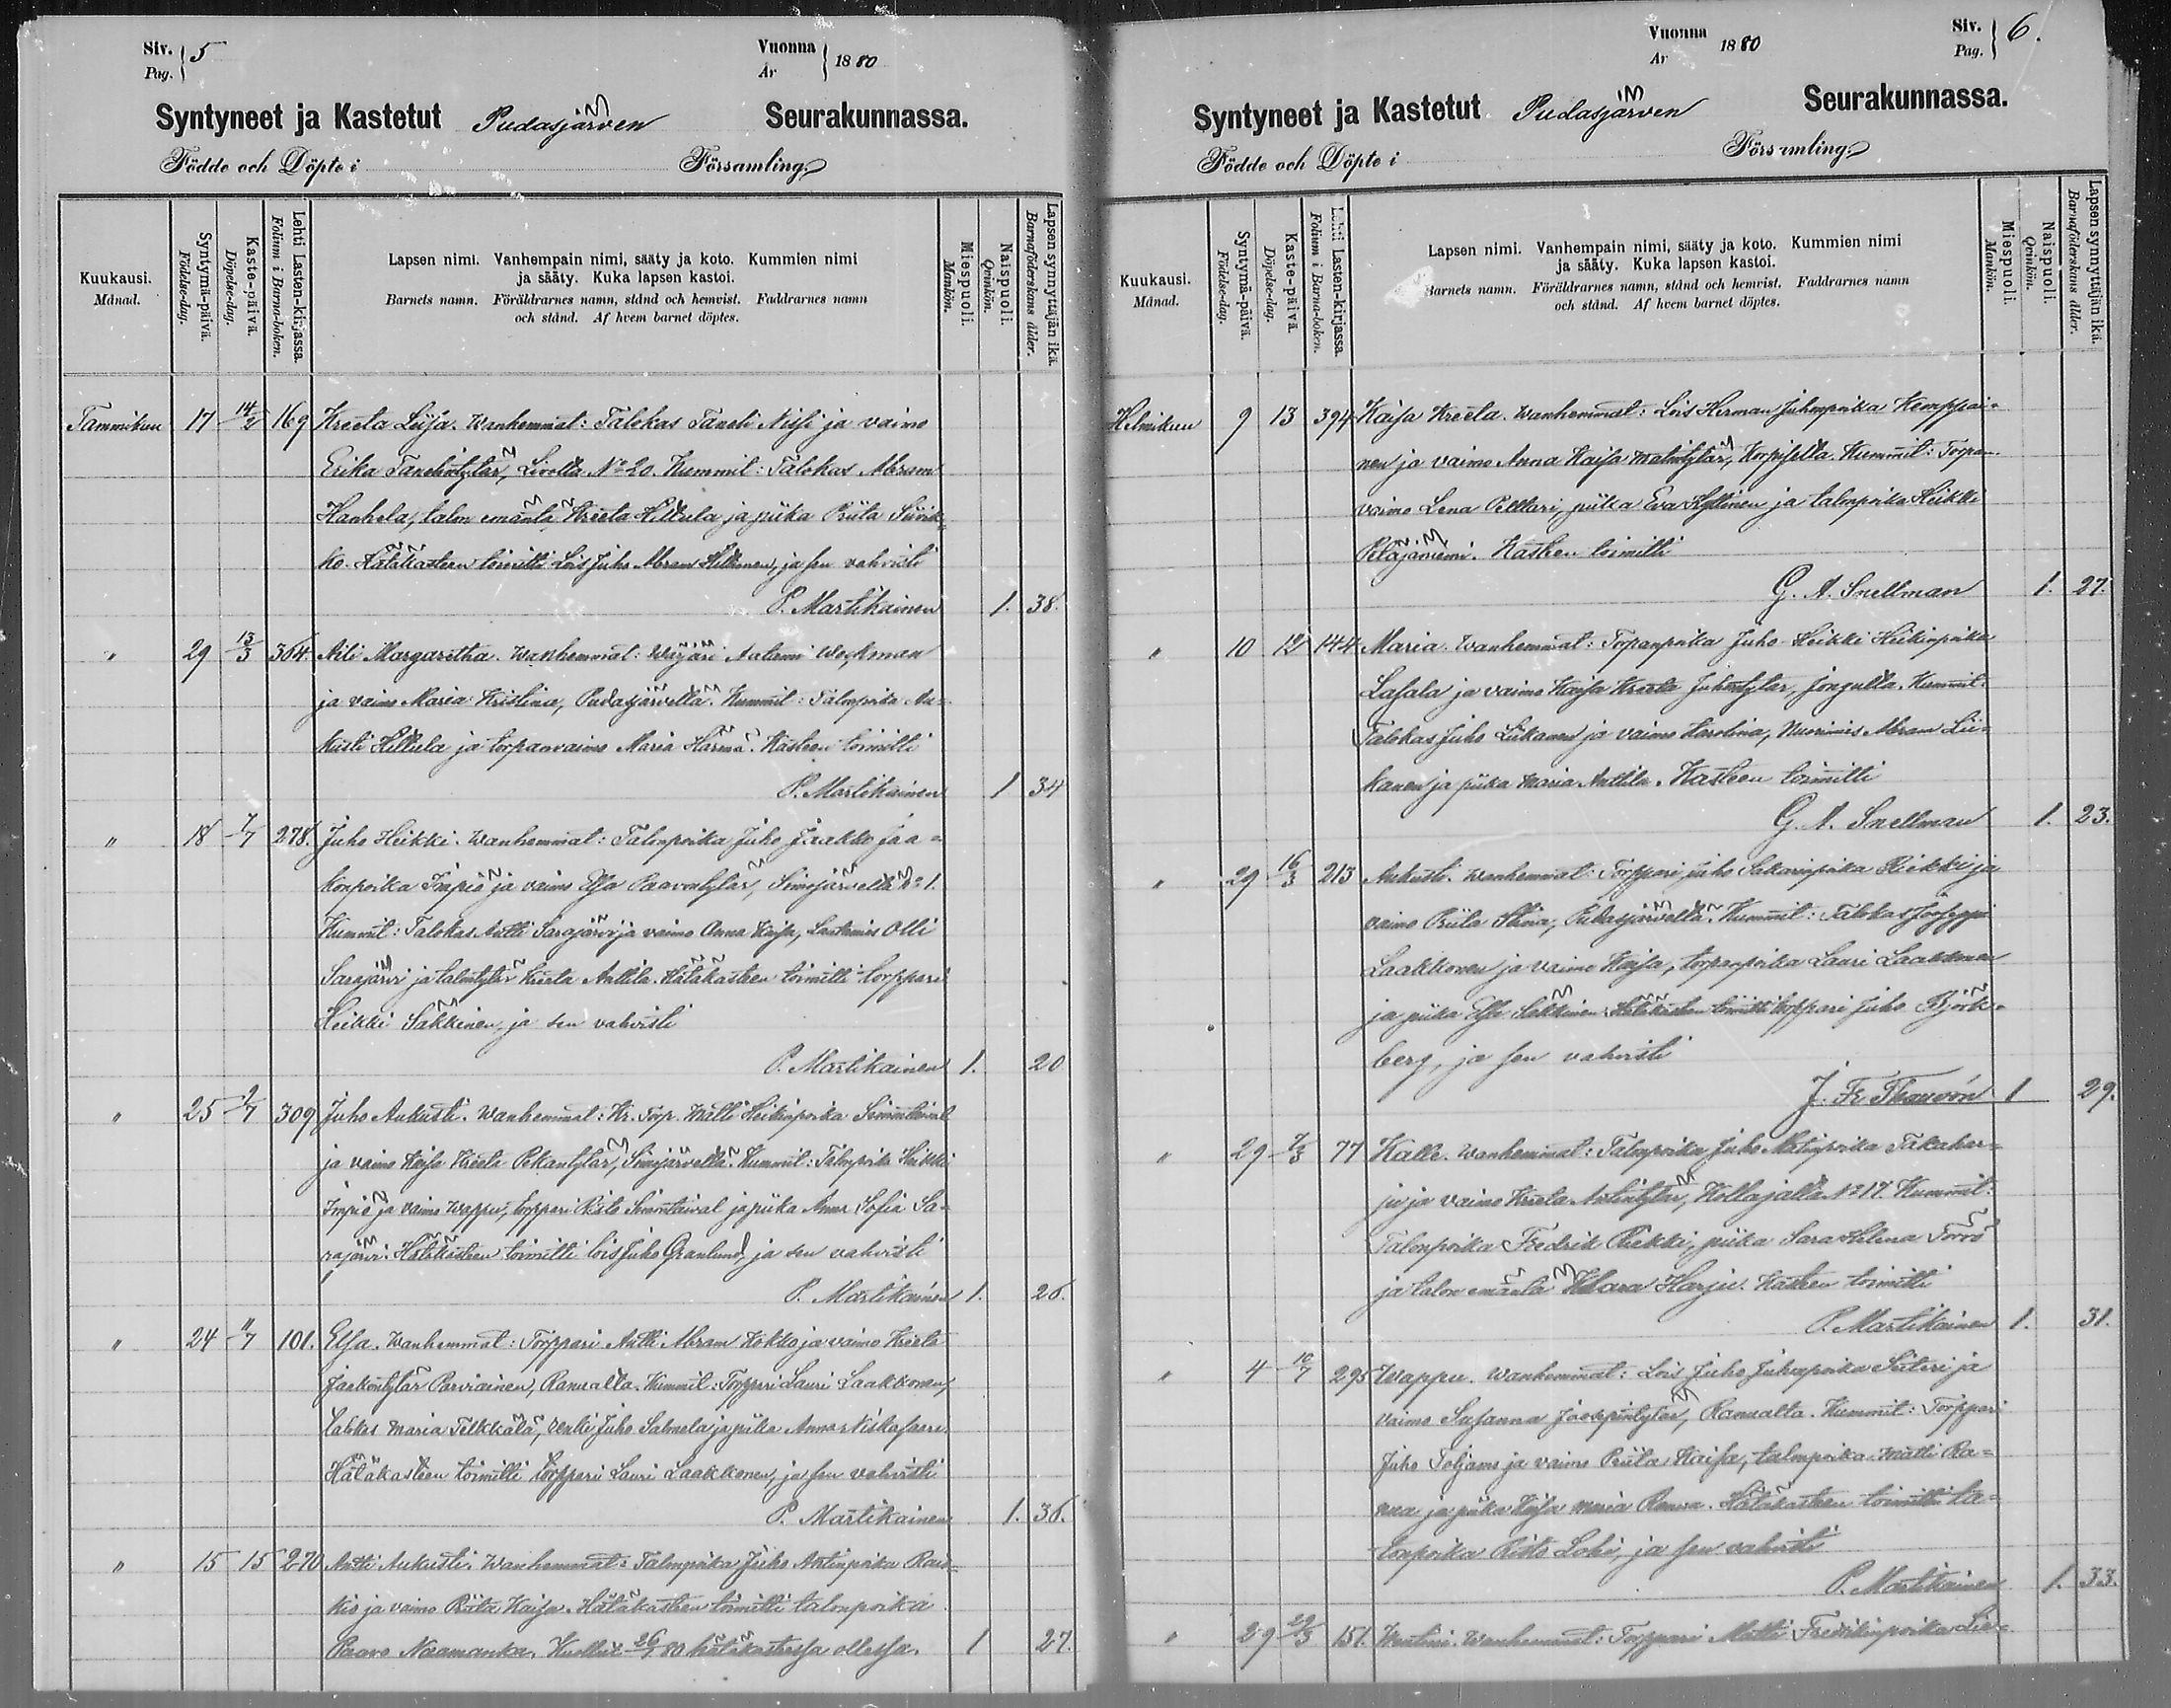 Siv. 5
Pag.
Vuonna 1880
År
Syntyneet ja Kastetut Pudasjärven Seurakunnassa.
Födde och Döpte i Församling.
Kuukausi. Månad.
Syntymä-päivä. Födelse-dag.
Kaste-päivä. Döpelse-dag.
Lehti Lasten-kirjassa. Folium i Barna-boken.
Lapsen nimi. Vanhempain nimi, sääty ja koto. Kummien nimi
ja sääty. Kuka lapsen kastoi.
Barnets namn. Föräldrarnes namn, stånd och hemvist. Faddrarnes namn
och stånd. Af hvem barnet döptes.
Miespuoli. Mankön.
Naispuoli. Qvinkön.
Lapsen synnyttäjän ikä. Barnaföderskans ålder.
Tammikuu 17 14/2 169 Kreeta Liisa. Wanhemmat: Talokas Taneli Nissi ja vaimo
Erika Tanelintytär, Livolta No 20. Kummit: Talokas Abram
Hanhela, talon emäntä Kreeta Hiltula ja piika Priita Siivik-
ko. Hätäkasteen toimitti Lois Juho Abram Hiltunen, ja sen vahvisti
P. Martikainen 1. 38.
" 29 13/3 364 Aili Margaretha. Wanhemmat: Wärjäri Aalenni Weckman
ja vaimo Maria Kristiina, Pudasjärvellä. Kummit: Talonpoika Au-
kusti Hiltula ja torpanvaimo Maria Härmä. Kasteen toimitti
P. Martikainen 1 34
" 18 7/7 278. Juho Heikki. Wanhemmat: Talonpoika Juho Jaakko Jaa-
konpoika Impiö ja vaimo Elsa Paavontytär, Simojärveltä No 1.
Kummit: Talokas Antti Sarajärvi ja vaimo Anna Kaisa, Lautamies Olli
Sarajärvi ja talontytär Kreeta Anttila. Hätäkasteen toimitti torppari
Heikki Säkkinen, ja sen vahvisti
P. Martikainen 1. 20
" 25 9/7 309 Juho Aukusti. Wanhemmat: Kr. Torp. Matti Heikinpoika Simontaival
ja vaimo Kaisa Kreeta Pekantytär, Simojärveltä. Kummit: Talonpoika Heikki
Impiö ja vaimo Wappu, torppari Risto Simontaival ja piika Anna Sofia Sa-
rajärvi. Hätäkasteen toimitti lois Juho Granlund, ja sen vahvisti
P. Martikainen 1. 26.
" 24 11/7 101. Elsa. Wanhemmat: Torppari Antti Abram Kokko ja vaimo Kreeta
Jaakontytär Parviainen, Ranualta. Kummit: Torppari Lauri Laakkonen,
talokas Maria Telkkälä, renki Juho Salmela ja piika Anna Niskasaari.
Hätäkasteen toimitti torppari Lauri Laakkonen, ja sen vahvisti
P. Martikainen 1. 36.
" 15 15 270 Antti Aukusti. Wanhemmat: Talonpoika Juho Antinpoika Rais-
kio ja vaimo Priita Kaisa. Hätäkasteen toimitti talonpoika
Paavo Naamanka. Kuollut 26/1 80 hätäkasteessa ollessa. 1 27.
Vuonna 1880
År
Siv. 6.
Pag.
Syntyneet ja Kastetut Pudasjärven Seurakunnassa.
Födde och Döpte i Församling.
Kuukausi. Månad.
Syntymä-päivä. Födelse-dag.
Kaste-päivä. Döpelse-dag.
Lehti Lasten-kirjassa. Folium i Barna-boken.
Lapsen nimi. Vanhempain nimi, sääty ja koto. Kummien nimi
ja sääty. Kuka lapsen kastoi.
Barnets namn. Föräldrarnes namn, stånd och hemvist. Faddrarnes namn
och stånd. Af hvem barnet döptes.
Miespuoli. Mankön.
Naispuoli. Qvinkön.
Lapsen synnyttäjän ikä. Barnaföderskans ålder.
Helmikuu 9 13 394 Kaisa Kreeta. Wanhemmat: Lois Herman Juhonpoika Kemppai-
nen ja vaimo Anna Kaisa Matintytär, Korpiselta. Kummit: Torpan
vaimo Lena Peltari, piika Eva Kyllinen ja talonpoika Heikki
Petäjäniemi. Kasteen toimitti
G. A. Snellman 1. 27.
" 10 12 144 Maria. Wanhemmat: Torpanpoika Juho Heikki Heikinpoika
Lasala ja vaimo Kaisa Kreeta Juhontytär, Jongulta. Kummit:
Talokas Juho Liikanen ja vaimo Karolina, Nuorimies Abram Lii-
kanen ja piika Maria Anttila. Kasteen toimitti
G. A. Snellman 1. 23.
" 29 16/3 213 Aukusti. Wanhemmat: Torppari Juho Sakarinpoika Riekki ja
vaimo Priita Stina, Pudasjärveltä. Kummit: Talokas Jooseppi
Laakkonen ja vaimo Kaisa, torpanpoika Lauri Laakkonen
ja piika Elsa Säkkinen. Hätäkasteen toimitti torppari Juho Björk-
berg, ja sen vahvisti
J. Fr. Thauvón 1 29.
" 29 7/3 77 Kalle. Wanhemmat: Talonpoika Juho Matinpoika Takahar-
ju ja vaimo Kreeta Antintytär, Kollajalta No 17. Kummit:
Talonpoika Fredrik Riekki, piika Sara Helena Törrö
ja talon emäntä Klara Harju. Kasteen toimitti
P. Martikainen 1. 31.
" 4 10/7 295 Wappu. Wanhemmat: Lois Juho Juhonpoika Siiteri ja
vaimo Susanna Jaakopintytär, Ranualta. Kummit: Torppari
Juho Toljamo ja vaimo Priita Kaisa, talonpoika Matti Ra-
nua ja piika Kaisa Maria Ranua. Hätäkasteen toimitti ta-
lonpoika Risto Lohi, ja sen vahvisti
P. Martikainen 1. 33.
" 29 29/3 151. Wanhemmat: Torppari Matti Fredrikinpoika Lie-